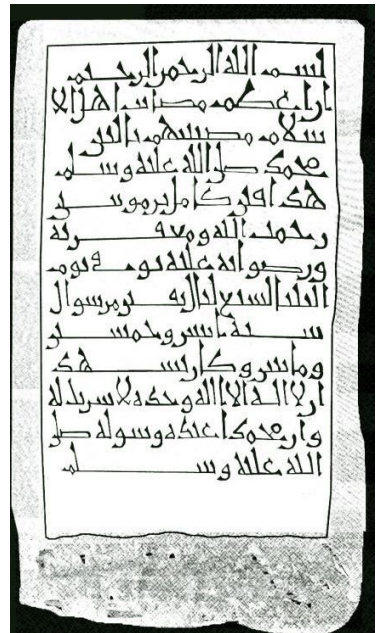 بسم الله الرحمن الرحيم
ان اعظم مصائب اهل الا
سلام مصيبتهم بالنبي
محمد صلى الله عليه وسلم
هذا قبر كامل بن موسى
رحمت الله ومغفرته
ورضوانه عليه توفي يوم
الثلثا لسبع ليال بقين من شوال
سنة اثنين وخمسين
ومائتين وكان يشهد
ان لا اله الا الله وحده لا شريك له
وان محمدا عبده ورسوله صلى
الله عليه وسلم